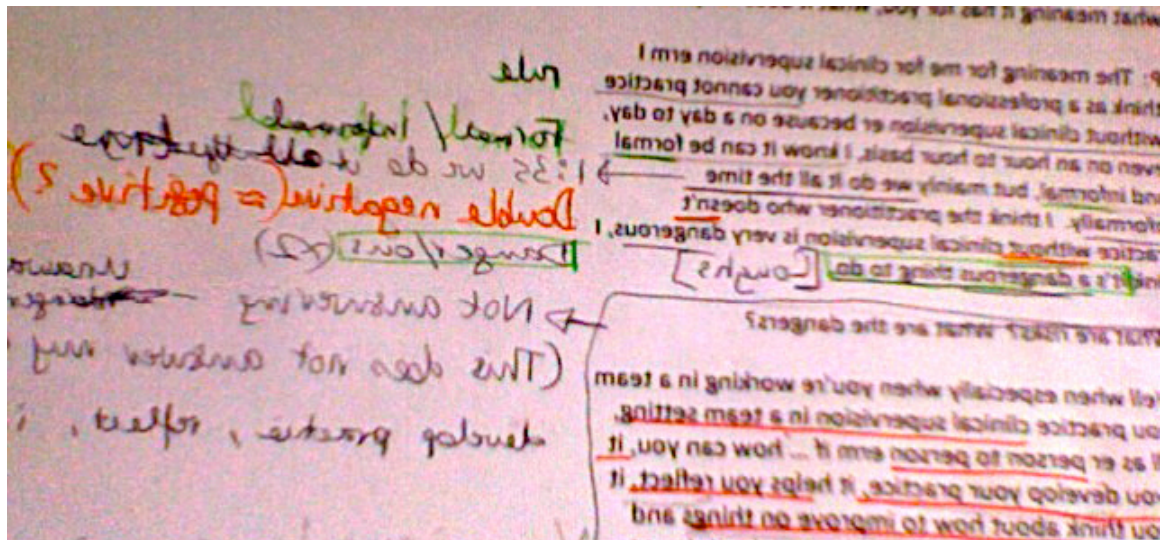 what meaning it has for you, what it
P: The meaning for me for clinical supervision erm I
think as a professional practitioner you cannot practice
without clinical supervision er because on a day to day,
even on an hour to hour basis, i know it can be formal
nd informal, but mainly we do it all the time
nformally. I think the practitioner who doesn't
ractice without clinical supervision is very dangerous, I
ink it's a dangerous thing to do. [Coughs]
What are risks? What are the dangers?
Well when especially when you're working in a team
ou practice clinical supervision in a team setting,
ll as er person to person erm if ... how can you, it
ou develop your practice, it helps you reflect, it
ou think about how to improve on things and
rule
Formal/Informal
1:35 we do it all the time
Double negative (= positive?)
Danger/ous (x2)
Not answering
(This does not answer my
develop practice, reflect, i